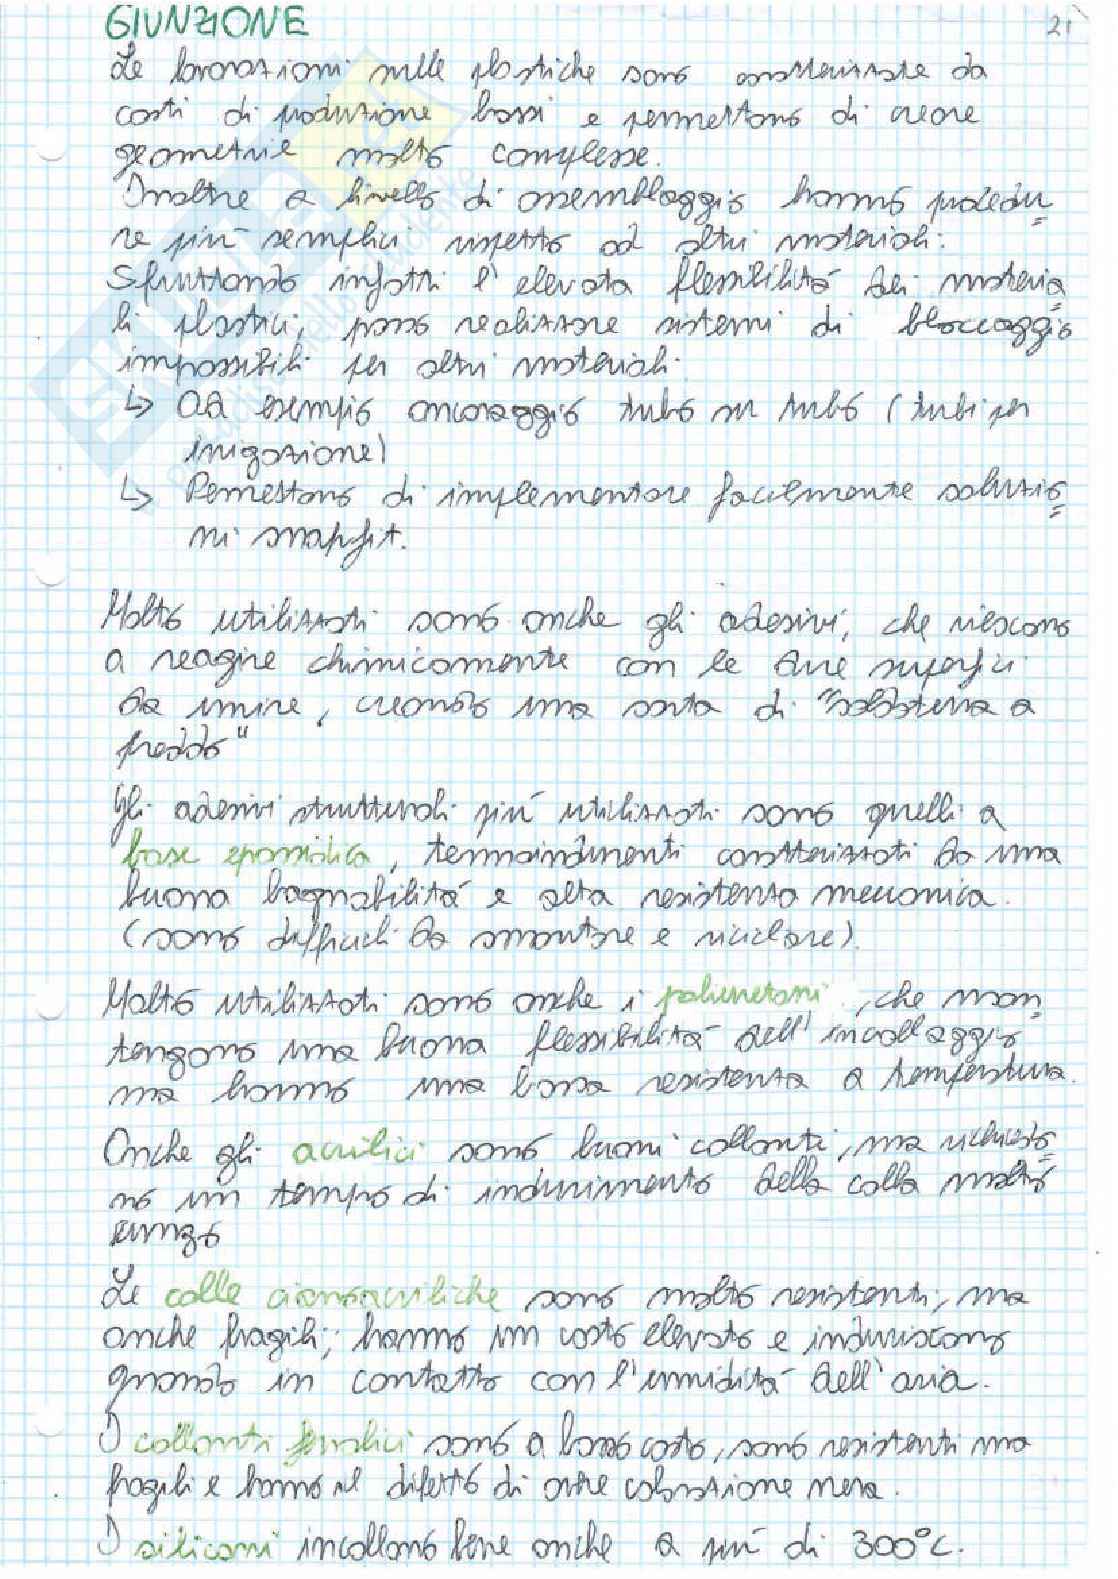 GIUNZIONE
21
Le lavorazioni sulle plastiche sono caratterizzate da
costi di produzione bassi e permettono di creare
geometrie molto complesse.
Inoltre a livello di assemblaggio hanno procedu
re più semplici rispetto ad altri materiali.
Sfruttando infatti l'elevata flessibilità dei materia
li plastici, posso realizzare sistemi di bloccaggio
impossibili per altri materiali.
↳ ad esempio ancoraggio tubo su tubo (tubi per
irrigazione)
↳ Permettono di implementare facilmente soluzio
ni snapfit.
Molto utilizzati sono anche gli adesivi, che riescono
a reagire chimicamente con le due superfici
da unire, creando una sorta di "saldatura a
freddo"
Gli adesivi strutturali più utilizzati sono quelli a
base epossidica, termoindurenti caratterizzati da una
buona bagnabilità e alta resistenza meccanica.
(sono difficili da smontare e riciclare).
Molto utilizzati sono anche i poliuretani, che man
tengono una buona flessibilità dell'incollaggio
ma hanno una bassa resistenza a temperatura.
Anche gli acrilici sono buoni collanti, ma richiedo
no un tempo di indurimento della colla molto
lungo
Le colle cianoacriliche sono molto resistenti, ma
anche fragili; hanno un costo elevato e induriscono
quando in contatto con l'umidità dell'aria.
I collanti fenolici sono a basso costo, sono resistenti ma
fragili e hanno il difetto di avere colorazione nera.
I siliconi incollano bene anche a più di 300°C.